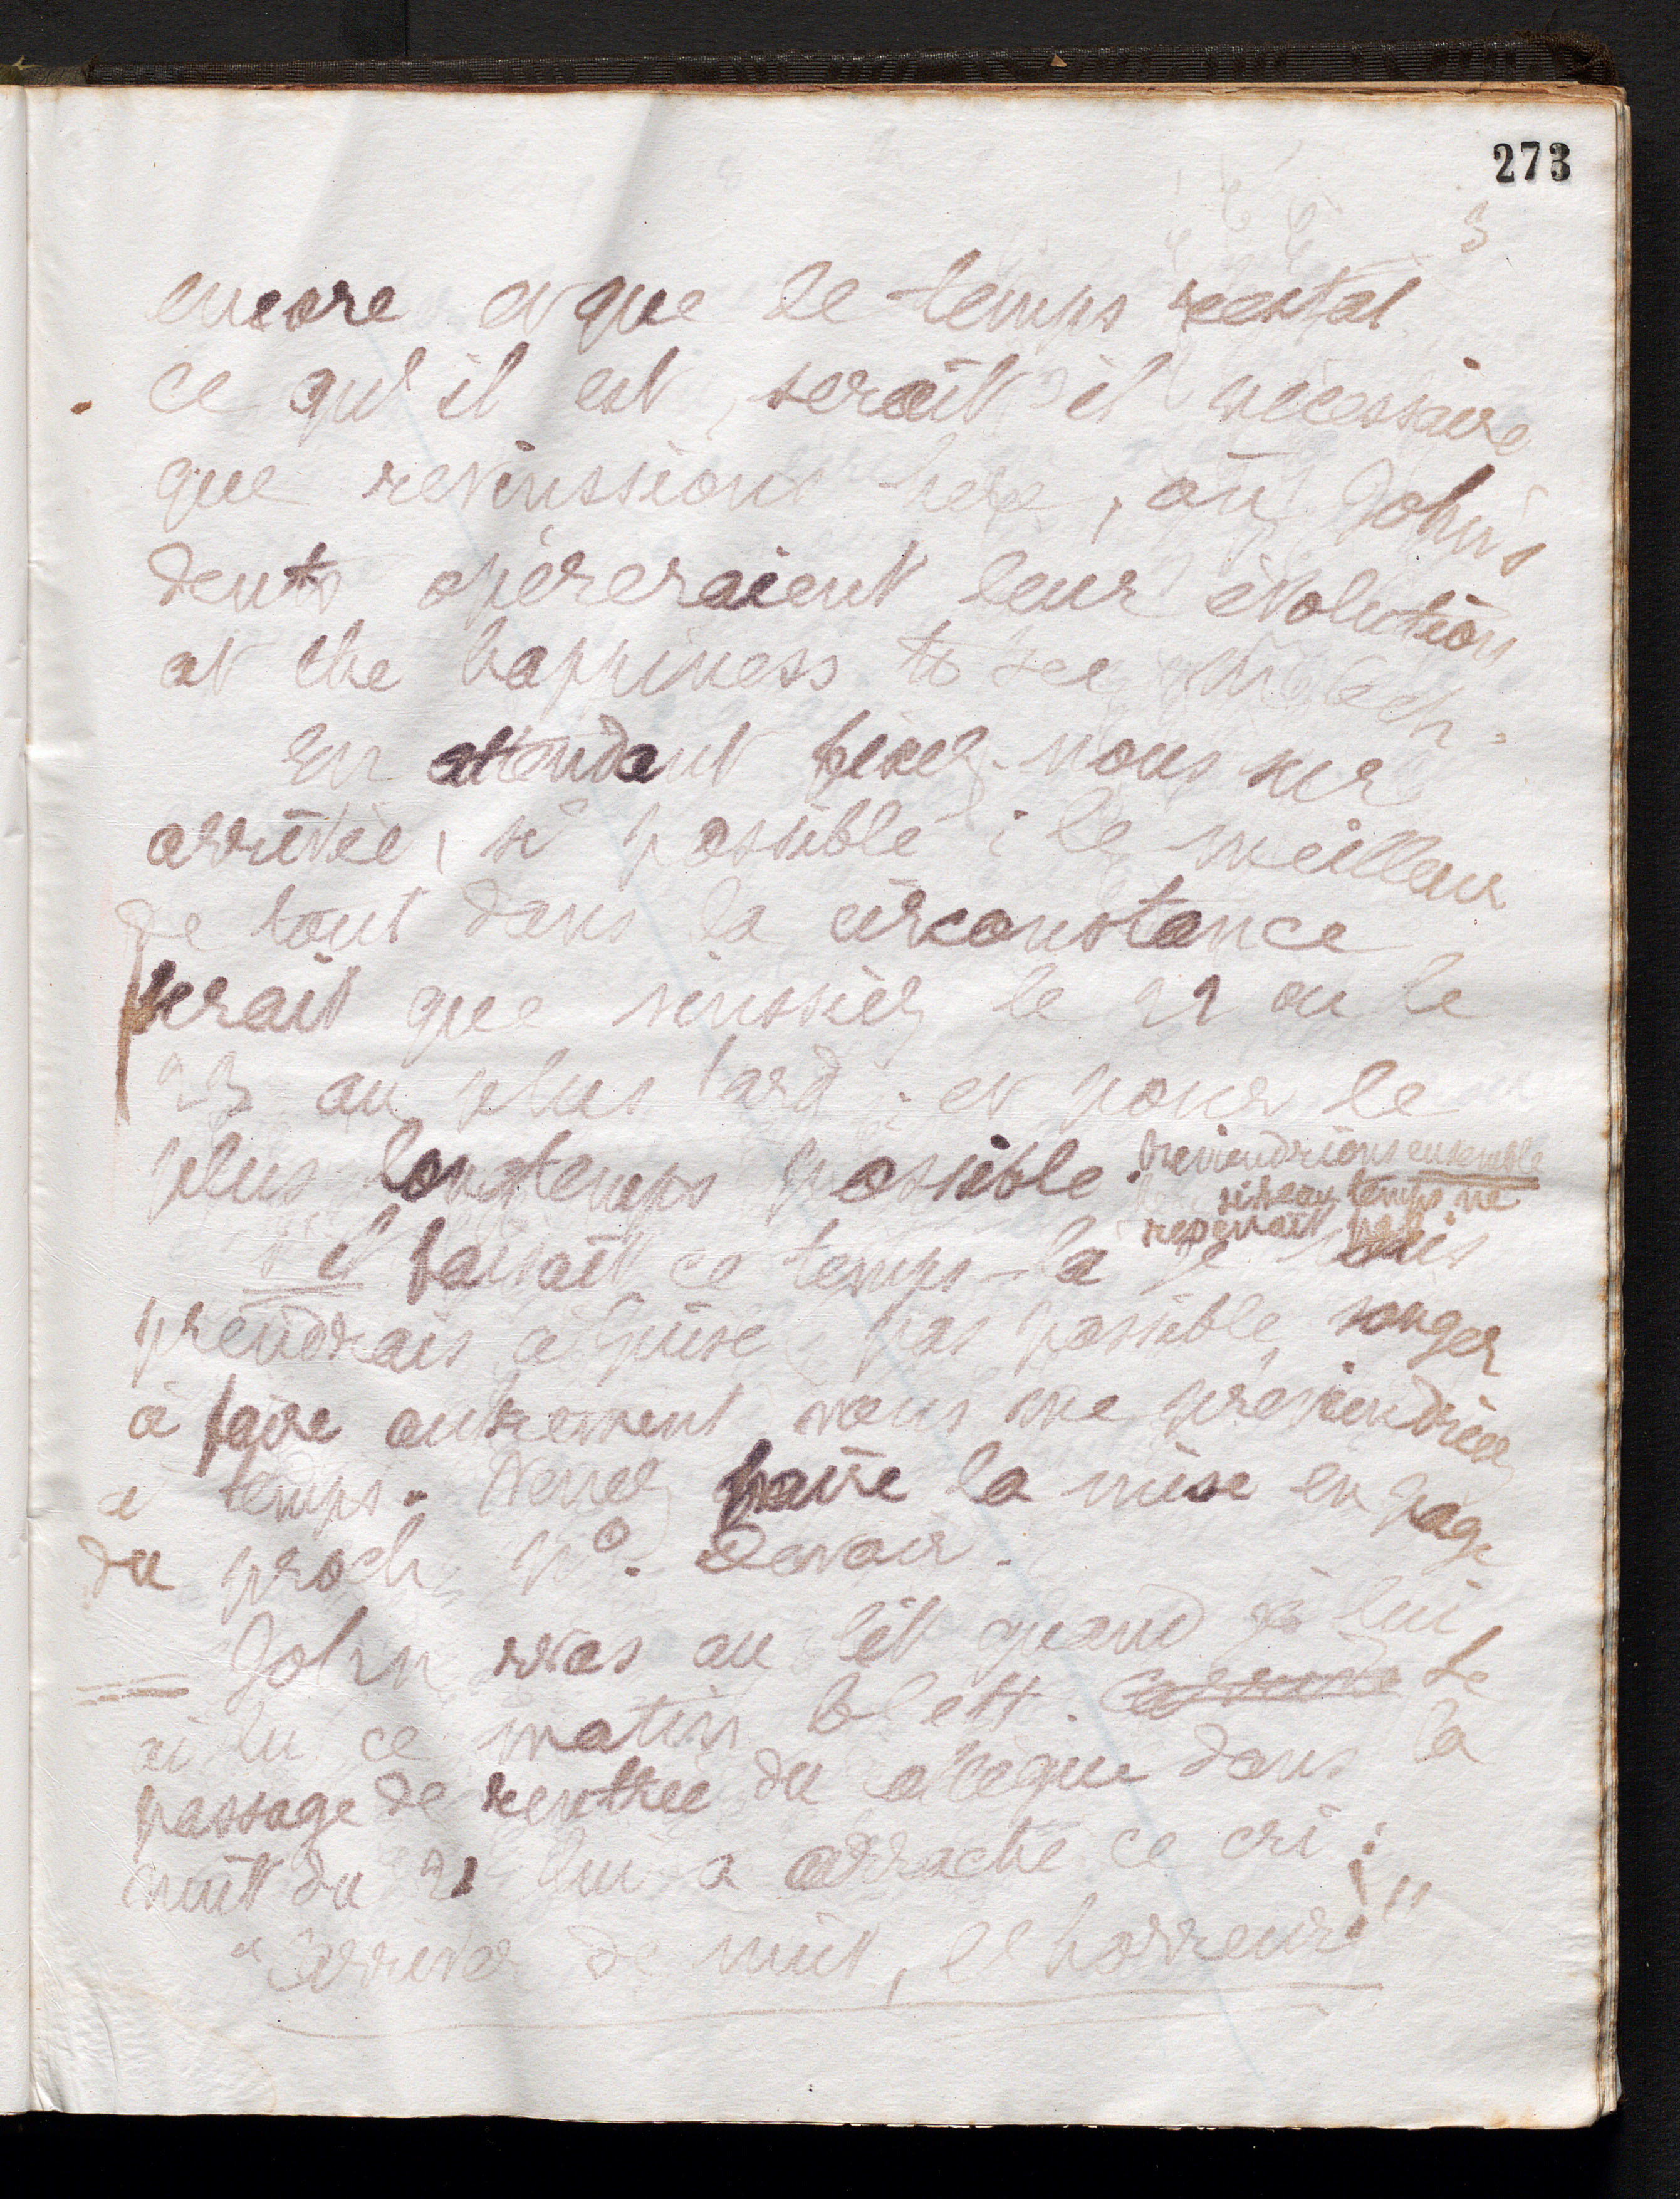 273
3
encore et que le temps restât
ce qu'il est, serait il nécessaire
que revinssions here, où John's
dents opéreraient leur évolution
at the happiness to see
En attendant fixez-nous sur
arrivée, si possible ; le meilleur
de tout dans la circonstance
serait que vinssiez le 22 ou le
23 au plus tard. et pour le
plus longtemps possible. Reviendrions ensemble
si beau temps ne
revenait pas
S'il faisait ce temps-là je vous
prendrais à Guise, pas possible songer
à faire autrement vous me préviendriez
à temps. Venez faire la mise en page
du proch. No. Devoir.
= John was au lit quand je lui
ai lu ce matin le lett. Le
passage de rentrée du dans la
nuit du 21 lui a arraché ce cri :
"Arriver de nuit, l'horreur!"